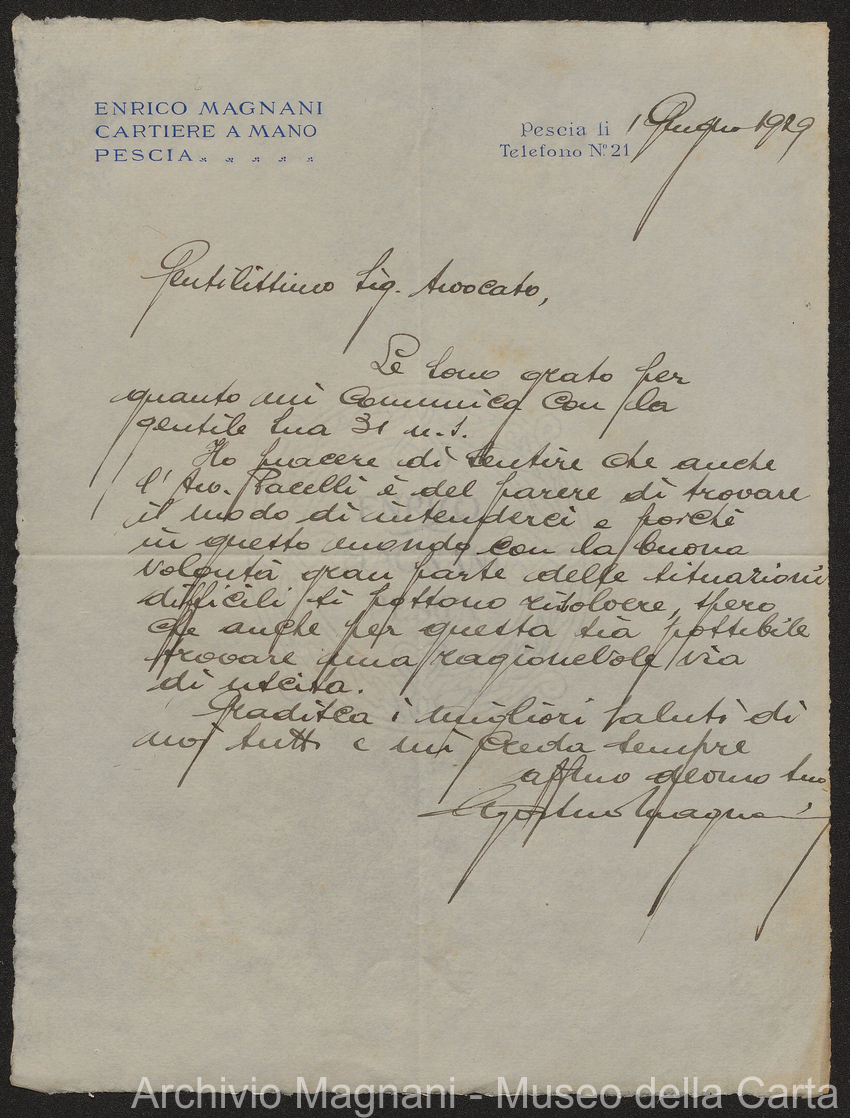 ENRICO MAGNANI
CARTIERE A MANO
PESCIA
Pescia li 1 Giugno 1929
Telefono Nº 21
Gentilissimo Sig. Avvocato,
Le sono grato per
quanto mi comunica con la
gentile Sua 31 u.s.
Ho piacere di sentire che anche
l'Avv. Pacelli è del parere di trovare
il modo di intenderci e poichè
in questo mondo con la buona
volontà gran parte delle situazioni
difficili si possono risolvere, spero
che anche per questa sia possibile
trovare una ragionevole via
di uscita.
Gradisca i migliori saluti di
noi tutti e mi creda sempre
affmo devmo Suo
Agostino Magnani
Archivio Magnani - Museo della Carta